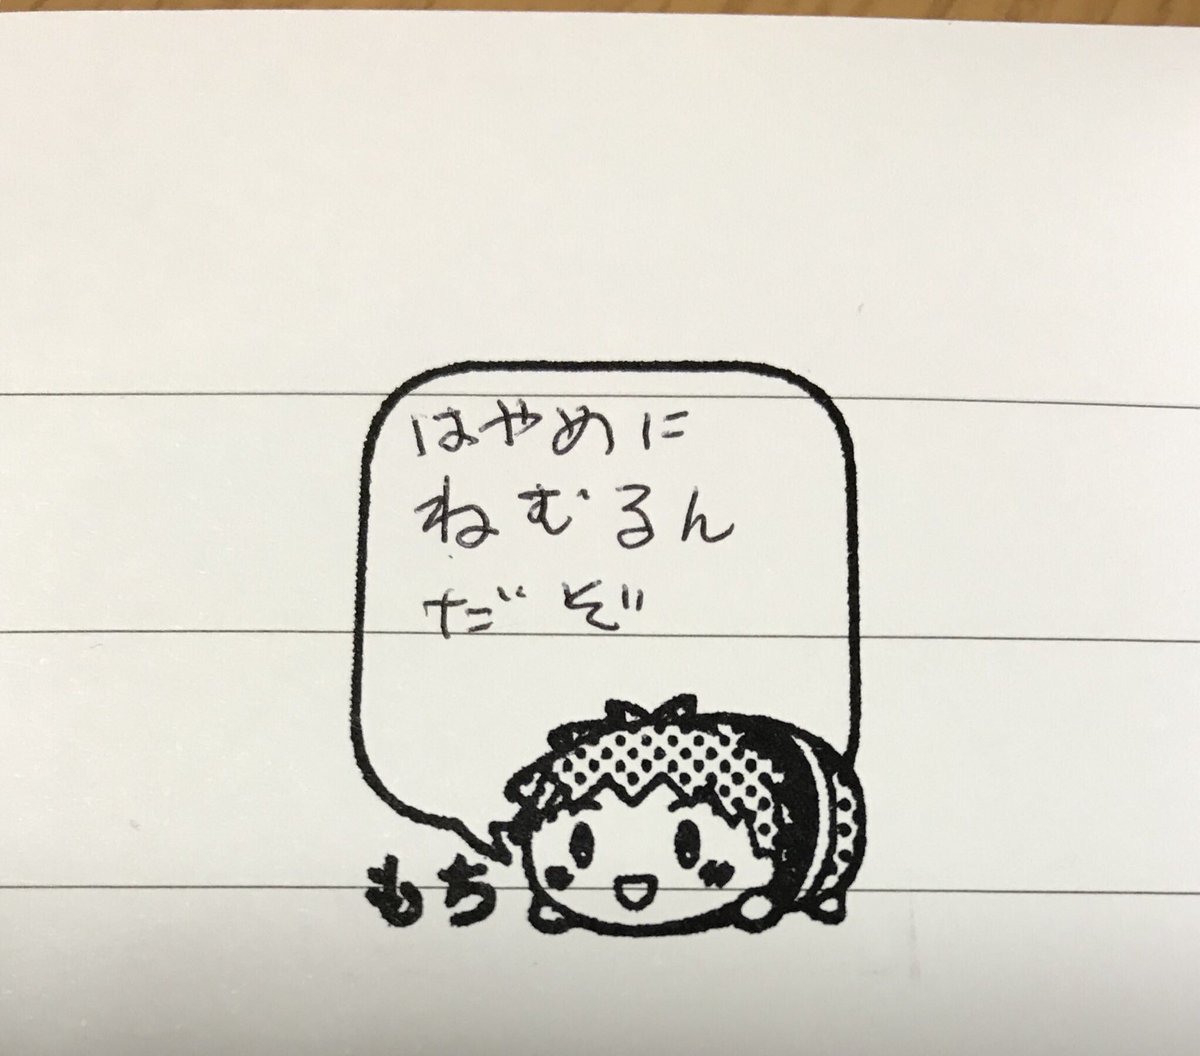 はやめに
ねむるん
だぞ
もち